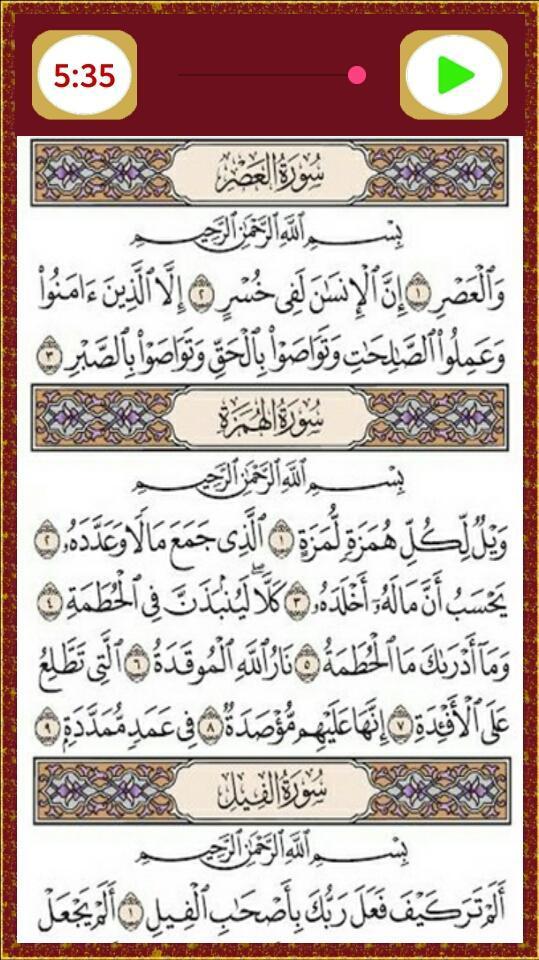 5:35
سُورَةُ العَصْرِ
بِسْمِ ٱللَّهِ ٱلرَّحْمَٰنِ ٱلرَّحِيمِ
وَٱلْعَصْرِ ١ إِنَّ ٱلْإِنسَٰنَ لَفِى خُسْرٍ ٢ إِلَّا ٱلَّذِينَ ءَامَنُوا۟
وَعَمِلُوا۟ ٱلصَّٰلِحَٰتِ وَتَوَاصَوْا۟ بِٱلْحَقِّ وَتَوَاصَوْا۟ بِٱلصَّبْرِ ٣
سُورَةُ الهُمَزَةِ
بِسْمِ ٱللَّهِ ٱلرَّحْمَٰنِ ٱلرَّحِيمِ
وَيْلٌ لِّكُلِّ هُمَزَةٍ لُّمَزَةٍ ١ ٱلَّذِى جَمَعَ مَالًا وَعَدَّدَهُۥ ٢
يَحْسَبُ أَنَّ مَالَهُۥٓ أَخْلَدَهُۥ ٣ كَلَّا ۖ لَيُنۢبَذَنَّ فِى ٱلْحُطَمَةِ ٤
وَمَآ أَدْرَىٰكَ مَا ٱلْحُطَمَةُ ٥ نَارُ ٱللَّهِ ٱلْمُوقَدَةُ ٦ ٱلَّتِى تَطَّلِعُ
عَلَى ٱلْأَفْـِٔدَةِ ٧ إِنَّهَا عَلَيْهِم مُّؤْصَدَةٌ ٨ فِى عَمَدٍ مُّمَدَّدَةٍۭ ٩
سُورَةُ الفِيلِ
بِسْمِ ٱللَّهِ ٱلرَّحْمَٰنِ ٱلرَّحِيمِ
أَلَمْ تَرَ كَيْفَ فَعَلَ رَبُّكَ بِأَصْحَٰبِ ٱلْفِيلِ ١ أَلَمْ يَجْعَلْ